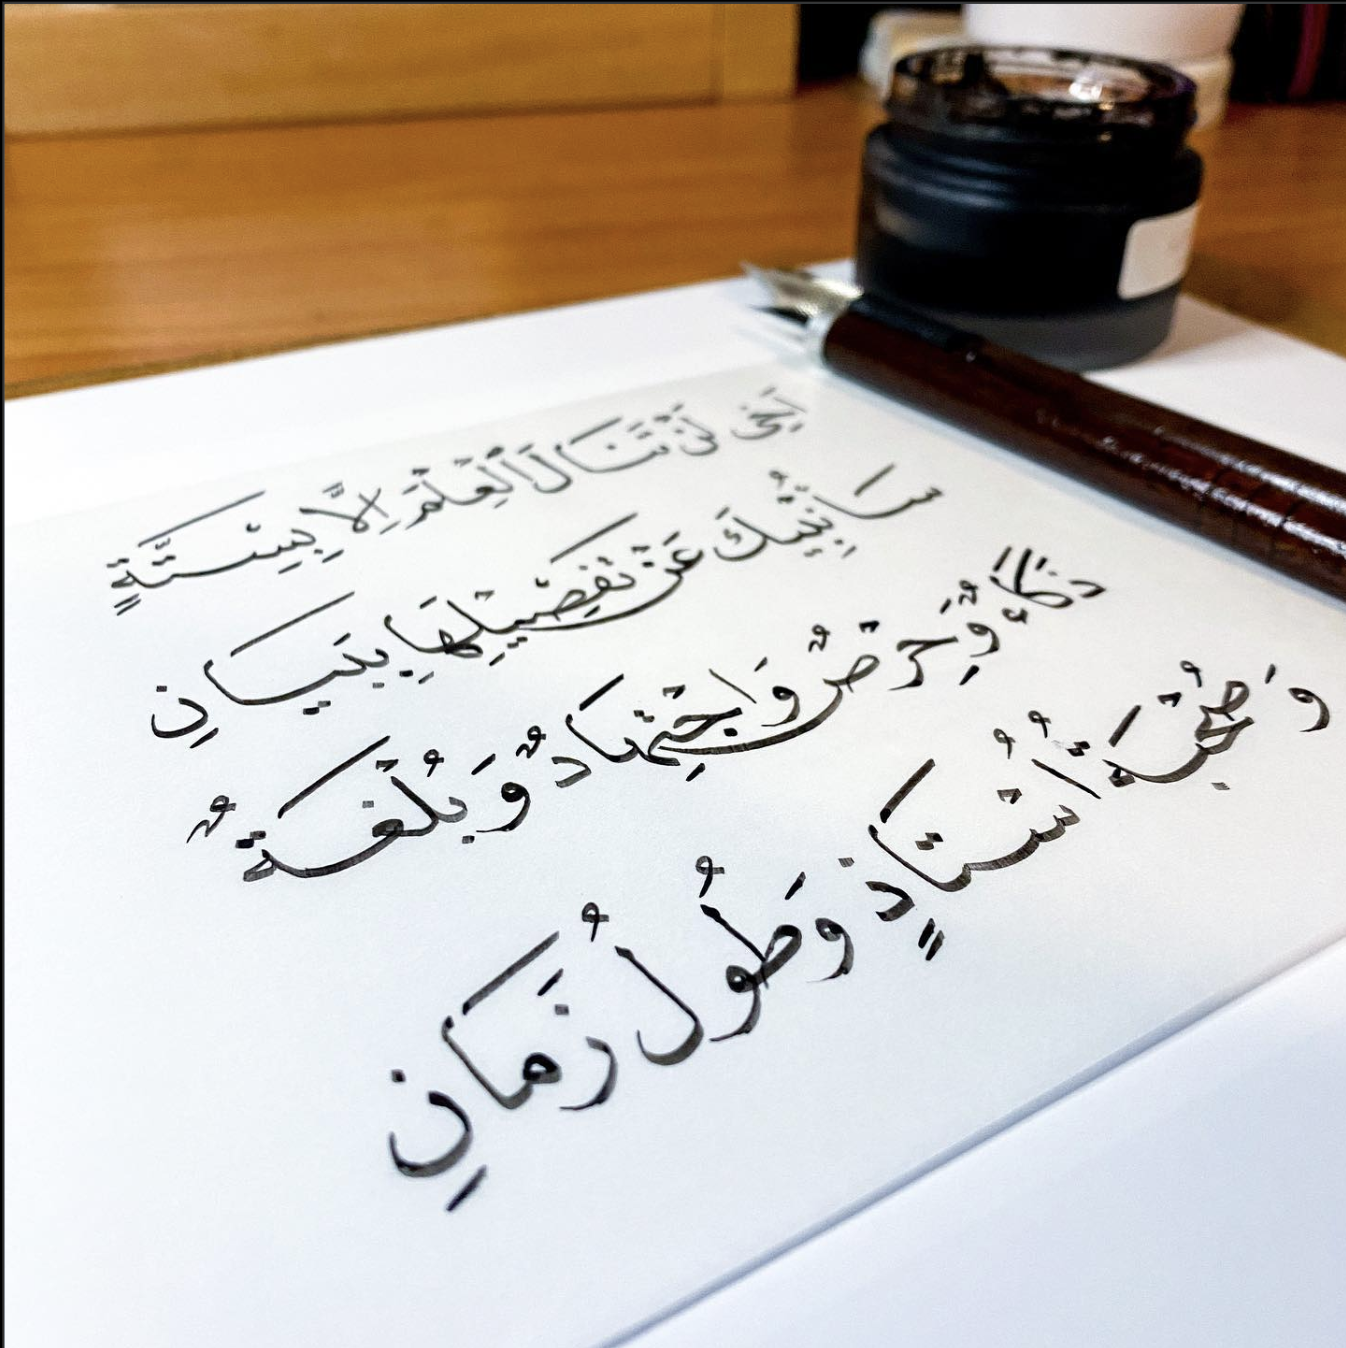 أَخِي لَنْ تَنَالَ الْعِلْمَ إِلَّا بِسِتَّةٍ
سَأُنْبِيْكَ عَنْ تَفْصِيْلِهَا بِبَيَانِ
ذَكَاءٌ وَحِرْصٌ وَاجْتِهَادٌ وَبُلْغَةٌ
وَصُحْبَةُ أُسْتَاذٍ وَطُولُ زَمَانِ